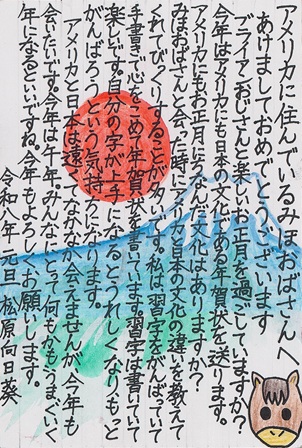 アメリカに住んでいるみほおばさんへ
あけましておめでとうございます
ブライアンおじさんと楽しいお正月を過ごしていますか？
今年はアメリカにも日本の文化である年賀状を送ります。
アメリカにもお正月に行なう文化はありますか？
みほおばさんと会った時にアメリカと日本の文化の違いを教えて
くれてびっくりすることが多いです。私は、習字をがんばっていて
手書きで心をこめて年賀状を書いています。習字は書いていて
楽しいです。自分の字が上手になるとうれしくなりもっと
がんばろうという気持ちになります。
アメリカと日本は遠くてなかなか会えませんが今年も
会いたいですね。今年は午年。みんなにとって何もかもうまくいく
年になるといいですね。今年もよろしくお願いします。
令和八年 元旦 松原向日葵